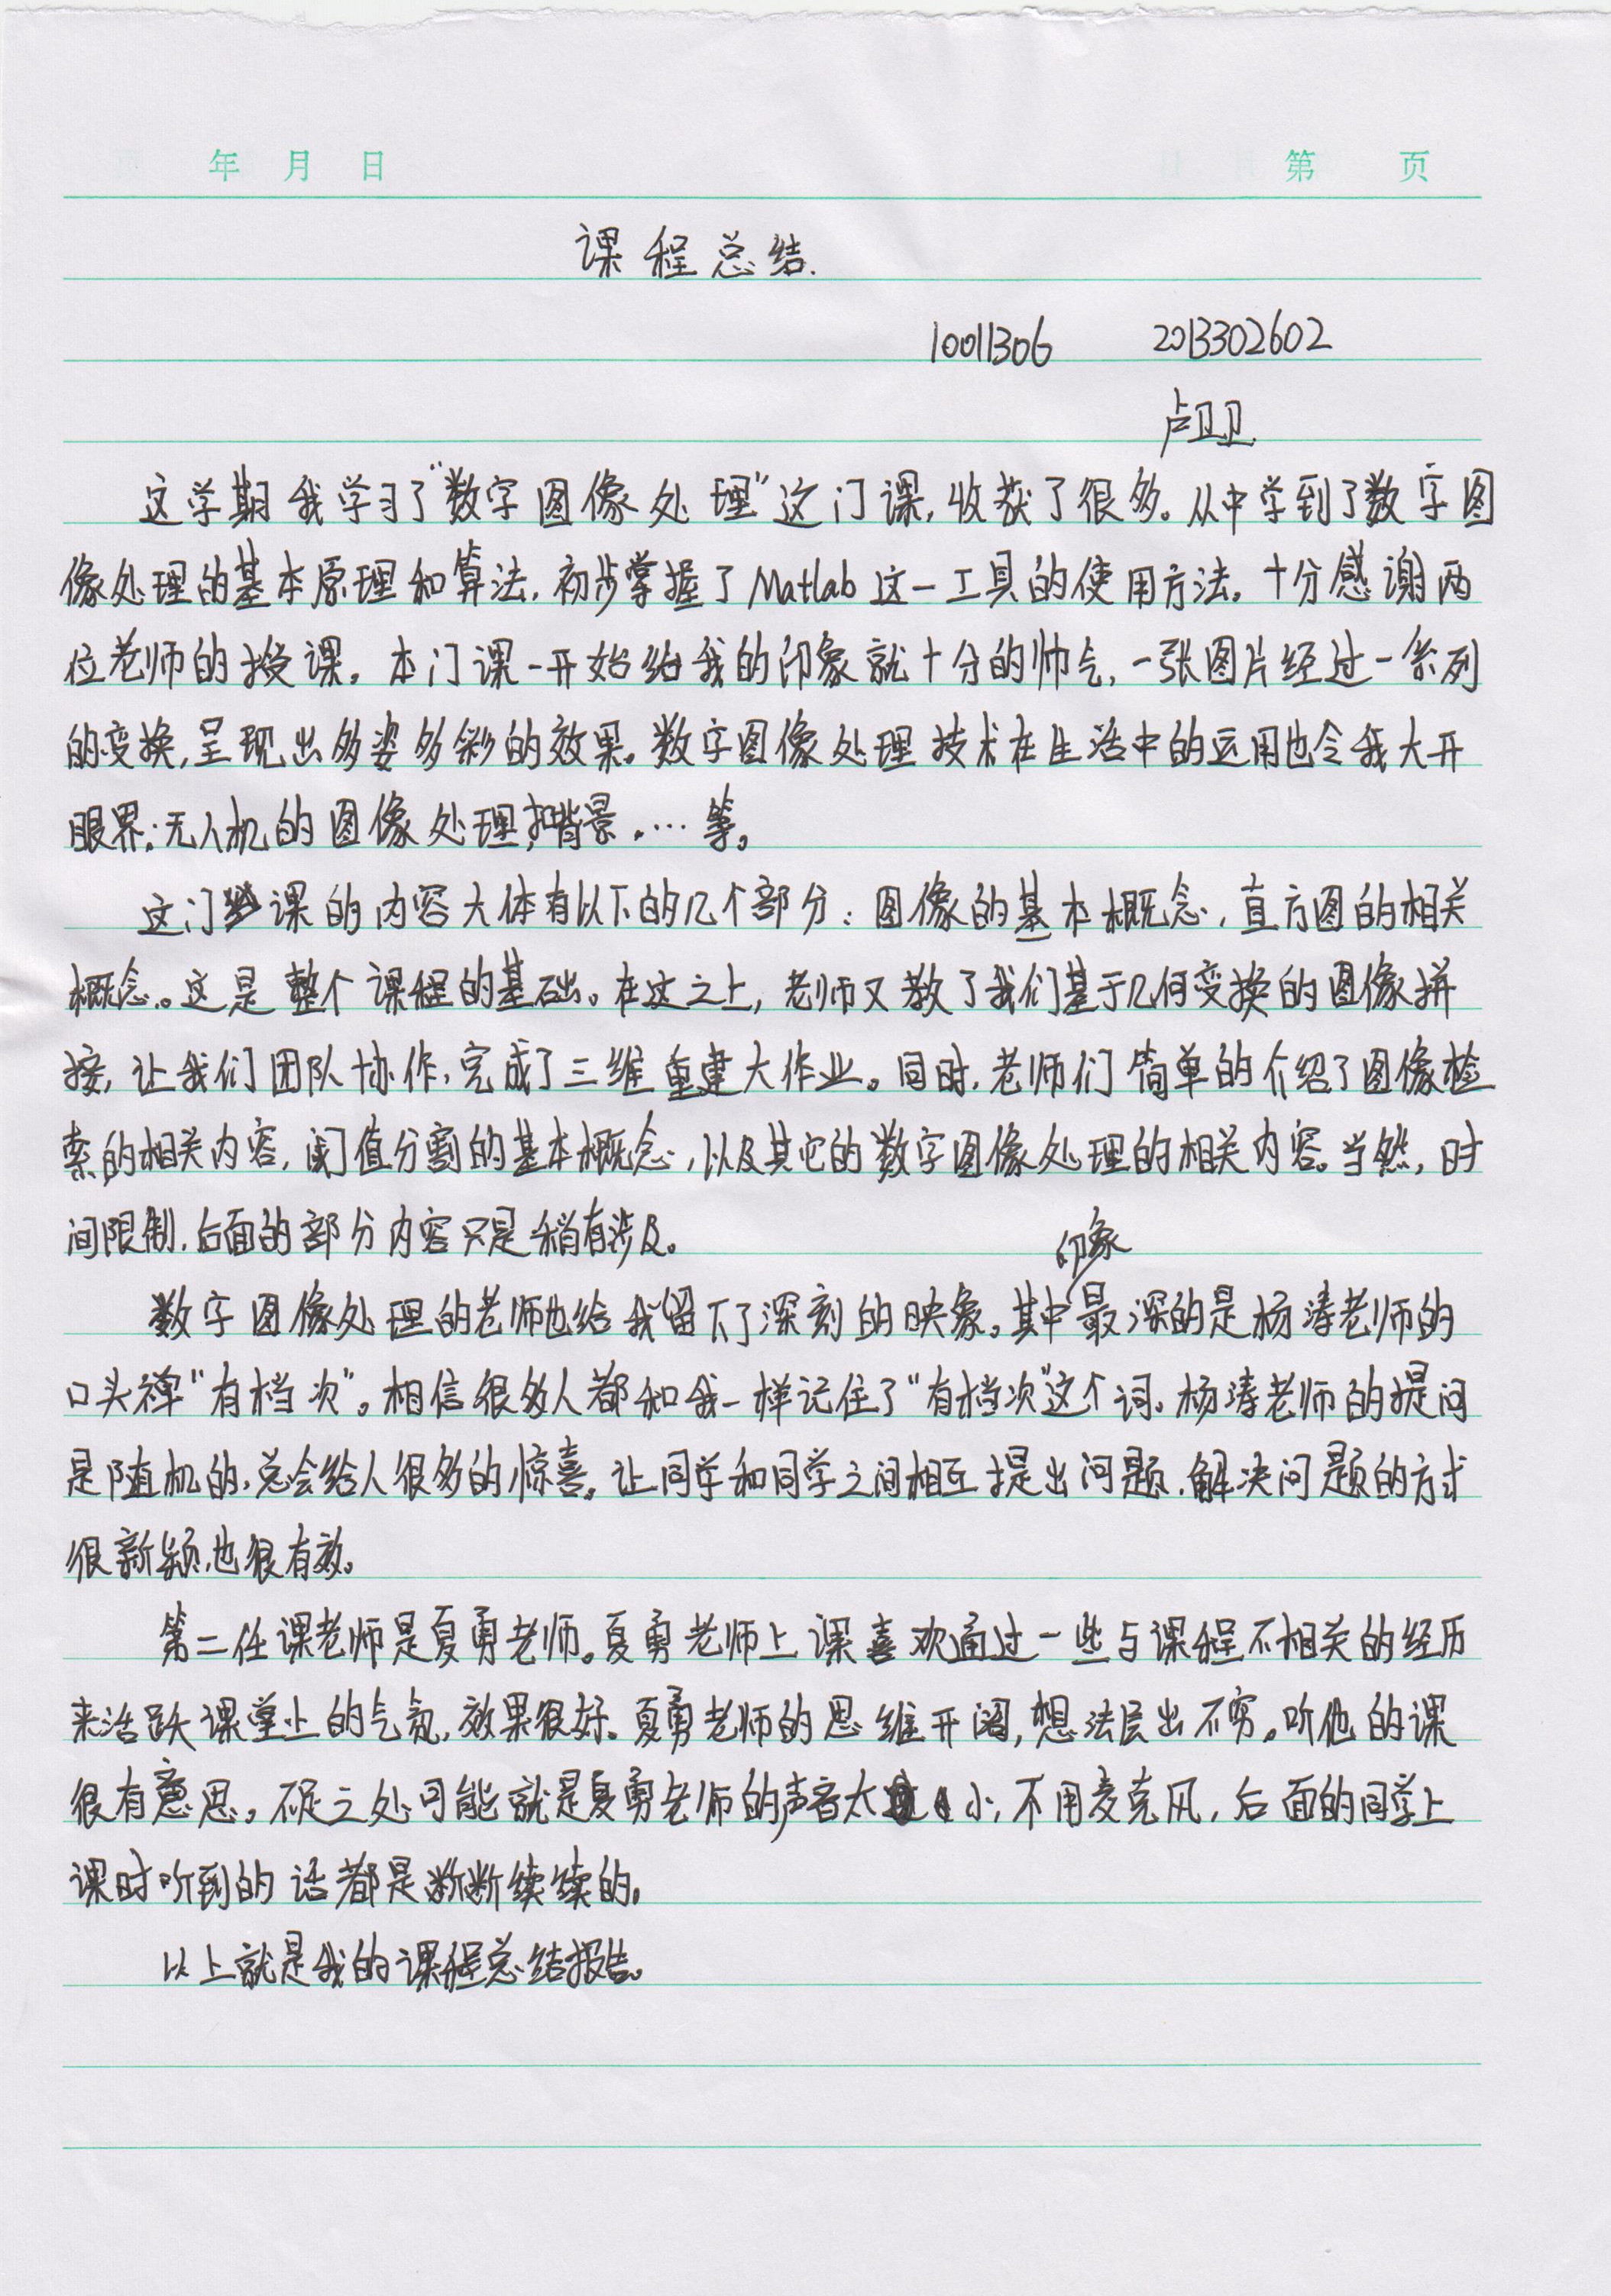 年 月 日 第 页
课程总结.
10011306 2013302602
卢卫卫
这学期我学习了“数字图像处理”这门课,收获了很多。从中学到了数字图
像处理的基本原理和算法,初步掌握了Matlab这一工具的使用方法。十分感谢两
位老师的授课。本门课一开始给我的印象就十分的帅气,一张图片经过一系列
的变换,呈现出多姿多彩的效果。数字图像处理技术在生活中的运用也令我大开
眼界:无人机的图像处理,抠背景....等。
这门课的内容大体有以下的几个部分:图像的基本概念,直方图的相关
概念。这是整个课程的基础。在这之上,老师又教了我们基于几何变换的图像拼
接,让我们团队协作,完成了三维重建大作业。同时,老师们简单的介绍了图像检
索的相关内容,阈值分割的基本概念,以及其它的数字图像处理的相关内容。当然,时
间限制,后面的部分内容只是稍有涉及。
印象
数字图像处理的老师也给我留下了深刻的映象。其中最深的是杨涛老师的
口头禅“有档次”。相信很多人都和我一样记住了“有档次”这个词。杨涛老师的提问
是随机的,总会给人很多的惊喜。让同学和同学之间相互提出问题,解决问题的方式
很新颖,也很有效。
第二任课老师是夏勇老师。夏勇老师上课喜欢通过一些与课程不相关的经历
来活跃课堂上的气氛,效果很好。夏勇老师的思维开阔,想法层出不穷。听他的课
很有意思。不足之处可能就是夏勇老师的声音太小,不用麦克风,后面的同学上
课时听到的话都是断断续续的。
以上就是我的课程总结报告。